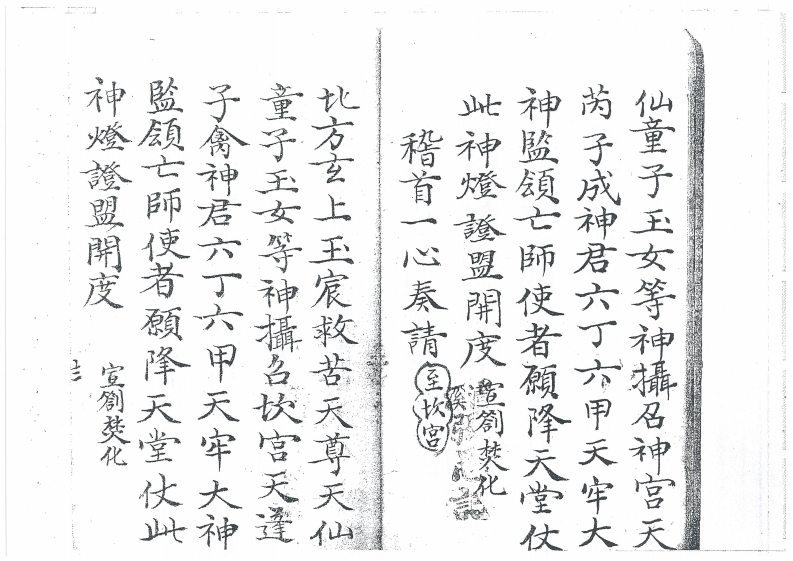 仙童子玉女等神攝召神宮天
芮子成神君六丁六甲天牢大
神監領亡師使者願降天堂仗
此神燈證盟開度 宣劄焚化
稽首一心奏請 至坎宮
北方玄上玉宸救苦天尊天仙
童子玉女等神攝召坎宮天蓬
子禽神君六丁六甲天牢大神
監領亡師使者願降天堂仗此
神燈證盟開度
宣劄焚化